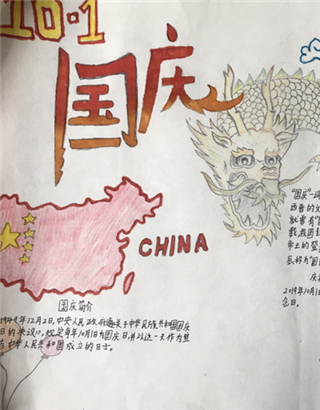 10·1
国庆
CHINA
国庆简介
1949年12月2日,中央人民政府通过关于中华人民共和国国庆
日的决议》,规定每年10月1日为国庆日,并以这一天作为宣
告中华人民共和国成立的日子。
"国庆"一
西晋的文
就曾有"
载,我国封
帝王的登
称为"国
庆
2019年10月1
念日。